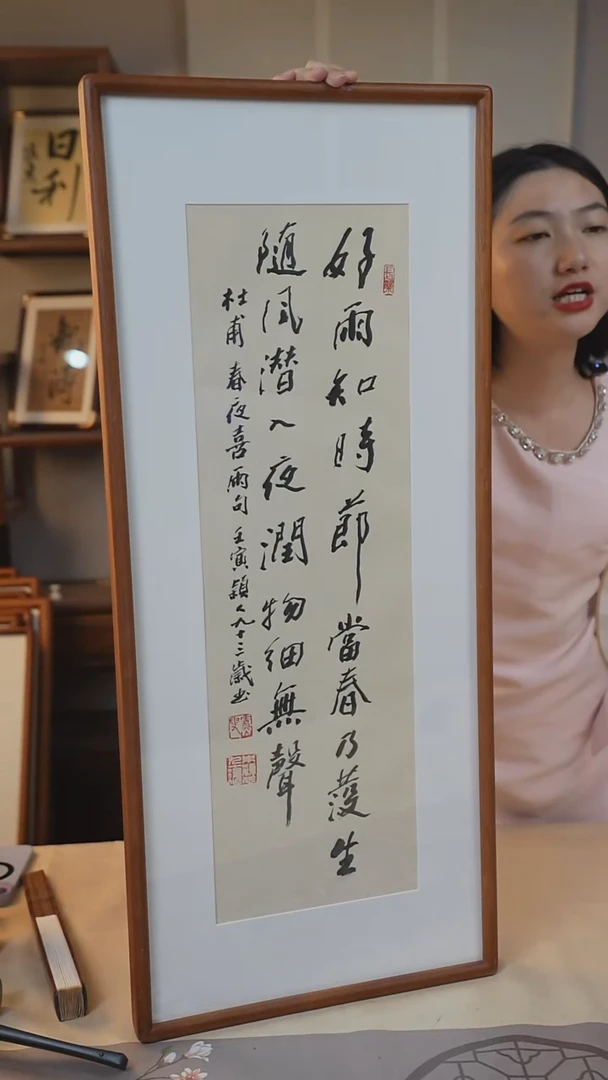 好雨知時節當春乃發生
隨風潜入夜潤物細無聲
杜甫春夜喜雨句壬寅九十三歲书
日利